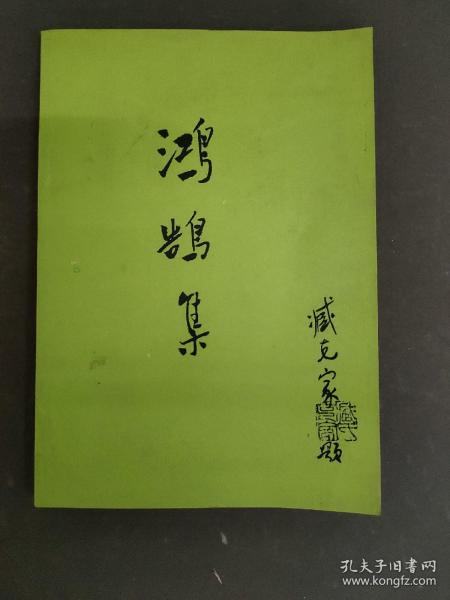 鸿鹄集
臧克家题
孔夫子旧书网
www.kongfz.com